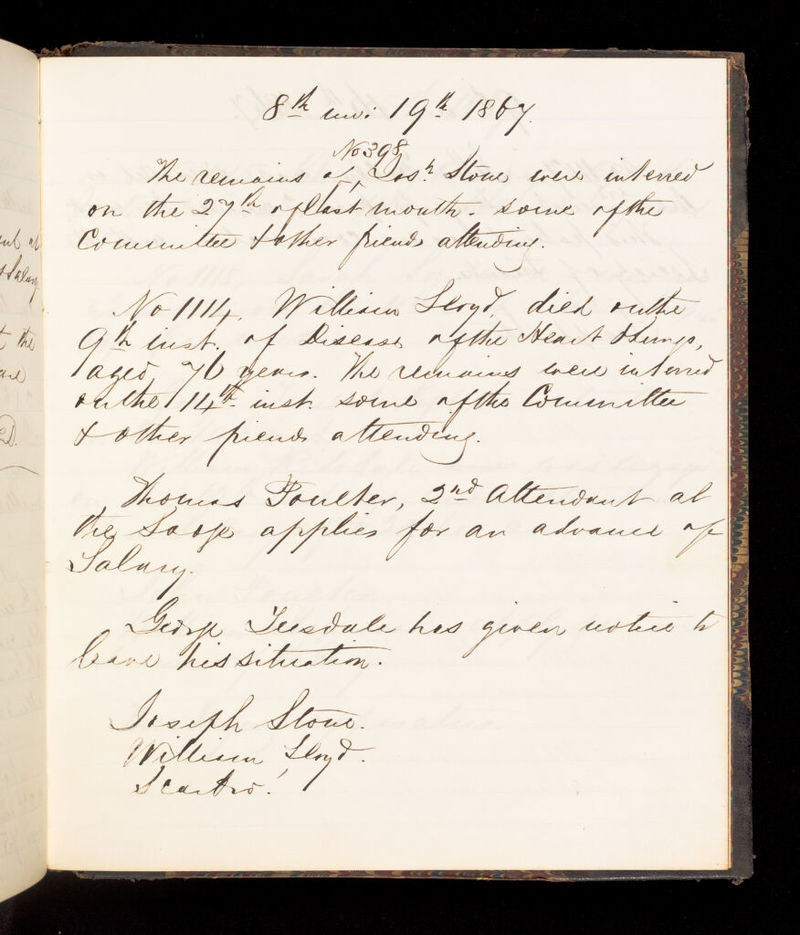 8th mo: 19th 1867.
No 398
The remains of Josh. Stone were interred
on the 27th of last month. some of the
Committee & other friends attending.
No 1114, William Lloyd, died on the
9th inst. of Disease of the Heart & Lungs,
aged 76 years. The remains were interred
on the 14th inst. some of the Committee
& other friends attending.
Thomas Poulter, 2nd Attendant at
the Lodge applies for an advance of
Salary.
George Teesdale has given notice to
leave his situation.
Joseph Stone.
William Lloyd.
Scarbro'.